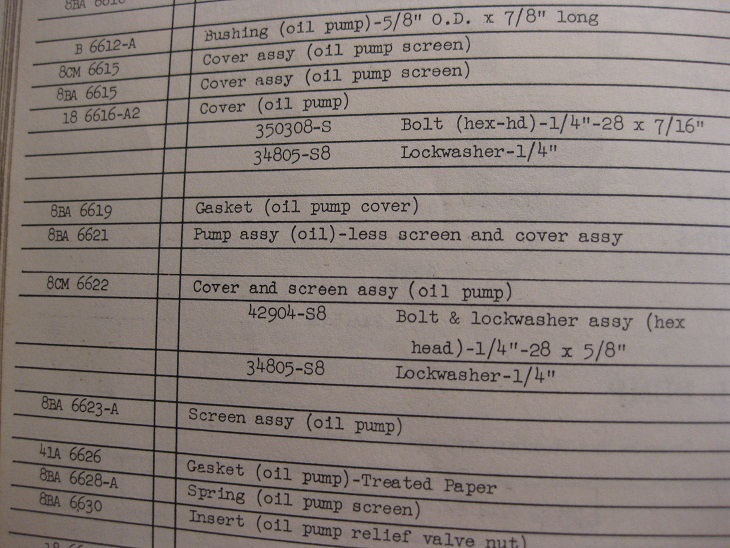 B 6612-A Bushing (oil pump)-5/8" O.D. x 7/8" long
8CM 6615 Cover assy (oil pump screen)
8BA 6615 Cover assy (oil pump screen)
18 6616-A2 Cover (oil pump)
350308-S Bolt (hex-hd)-1/4"-28 x 7/16"
34805-S8 Lockwasher-1/4"
8BA 6619 Gasket (oil pump cover)
8BA 6621 Pump assy (oil)-less screen and cover assy
8CM 6622 Cover and screen assy (oil pump)
42904-S8 Bolt & lockwasher assy (hex
head)-1/4"-28 x 5/8"
34805-S8 Lockwasher-1/4"
8BA 6623-A Screen assy (oil pump)
41A 6626 Gasket (oil pump)-Treated Paper
8BA 6628-A Spring (oil pump screen)
8BA 6630 Insert (oil pump relief valve nut)